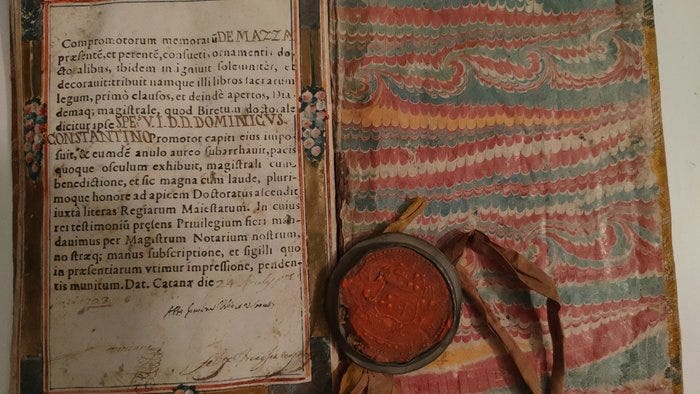 Compromotorum memoratū DE MAZZA
præsentē, et petentē, consueti, ornamenti, do
ctoralibus, ibidem insigniuit solemniter, et
decorauit: tribuit namque illi libros sacratum
legum, primò clausos, et deindè apertos, Dia
dema; magistrale, quod Biretum doctorale
dicitur ipse SPE. V.I.D.D. DOMINICVS.
CONSTANTINO Promotor capiti eius impo-
suit, & eumdē anulo aureo subarrhauit, pacis
quoque osculum exhibuit, magistrali cum
benedictione, et sic magna cum laude, pluri-
moque honore ad apicem Doctoratus ascendit
iuxtà literas Regiarum Maiestatum. In cuius
rei testimoniū præsens Priuilegium fieri man
dauimus per Magistrum Notarium nostrum,
nostræq; manus subscriptione, et sigilli quo
in præsentiarum vtimur impressione, penden-
tis munitum. Dat. Catanæ die 24